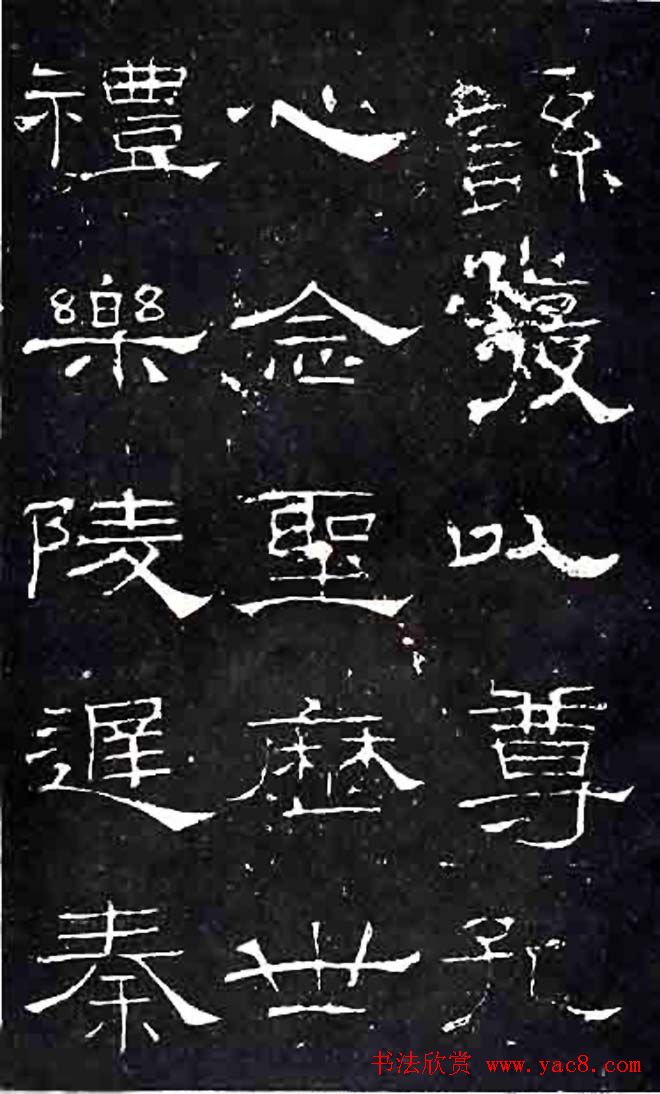 繇發以尊孔
心念聖歷世
禮樂陵遲秦
书法欣赏 www.yac8.com